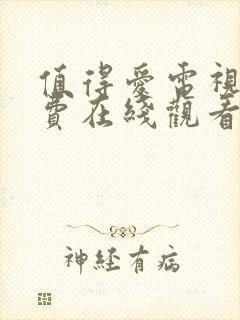 值得爱電視
費在綫觀看
神經有病